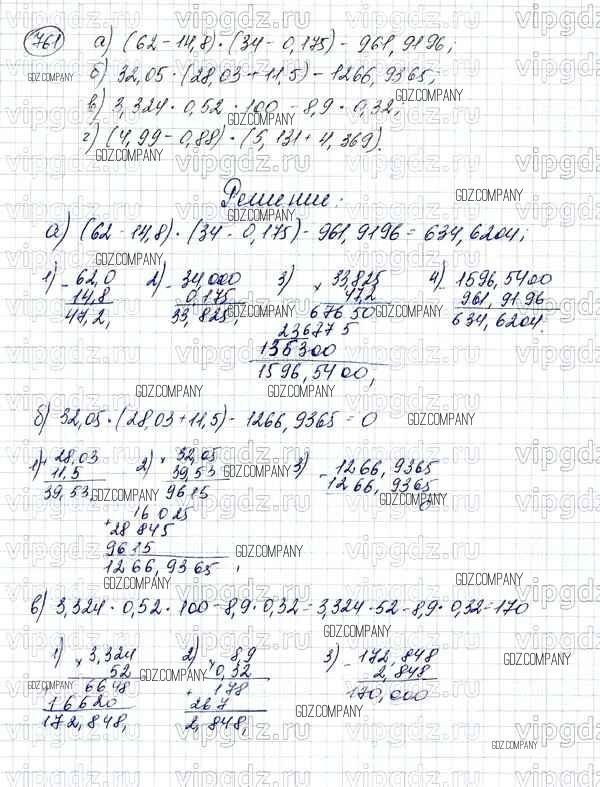 761 а) (62 - 14,8) · (34 - 0,175) - 961,9196;
б) 32,05 · (28,03 + 11,5) - 1266,9365;
в) 3,324 · 0,52 · 100 - 8,9 · 0,32;
г) (4,99 - 0,88) · (5,131 + 4,369).
Решение:
а) (62 - 14,8) · (34 - 0,175) - 961,9196 = 634,6204;
1) - 62,0 2) - 34,000 3) × 33,825 4) - 1596,5400
14,8 0,175 47,2 961,9196
47,2, 33,825, 67650 634,6204
236775
135300
1596,5400,
б) 32,05 · (28,03 + 11,5) - 1266,9365 = 0
1) + 28,03 2) × 32,05 3) - 1266,9365
11,5 39,53 1266,9365
39,53, 9615 0
16025
+ 28845
9615
1266,9365,
в) 3,324 · 0,52 · 100 - 8,9 · 0,32 = 3,324 · 52 - 8,9 · 0,32 = 170
1) × 3,324 2) × 8,9 3) - 172,848
52 0,32 2,848
+ 6648 + 178 170,000
16620 267
172,848, 2,848,
GDZ.COMPANY
vipgdz.ru